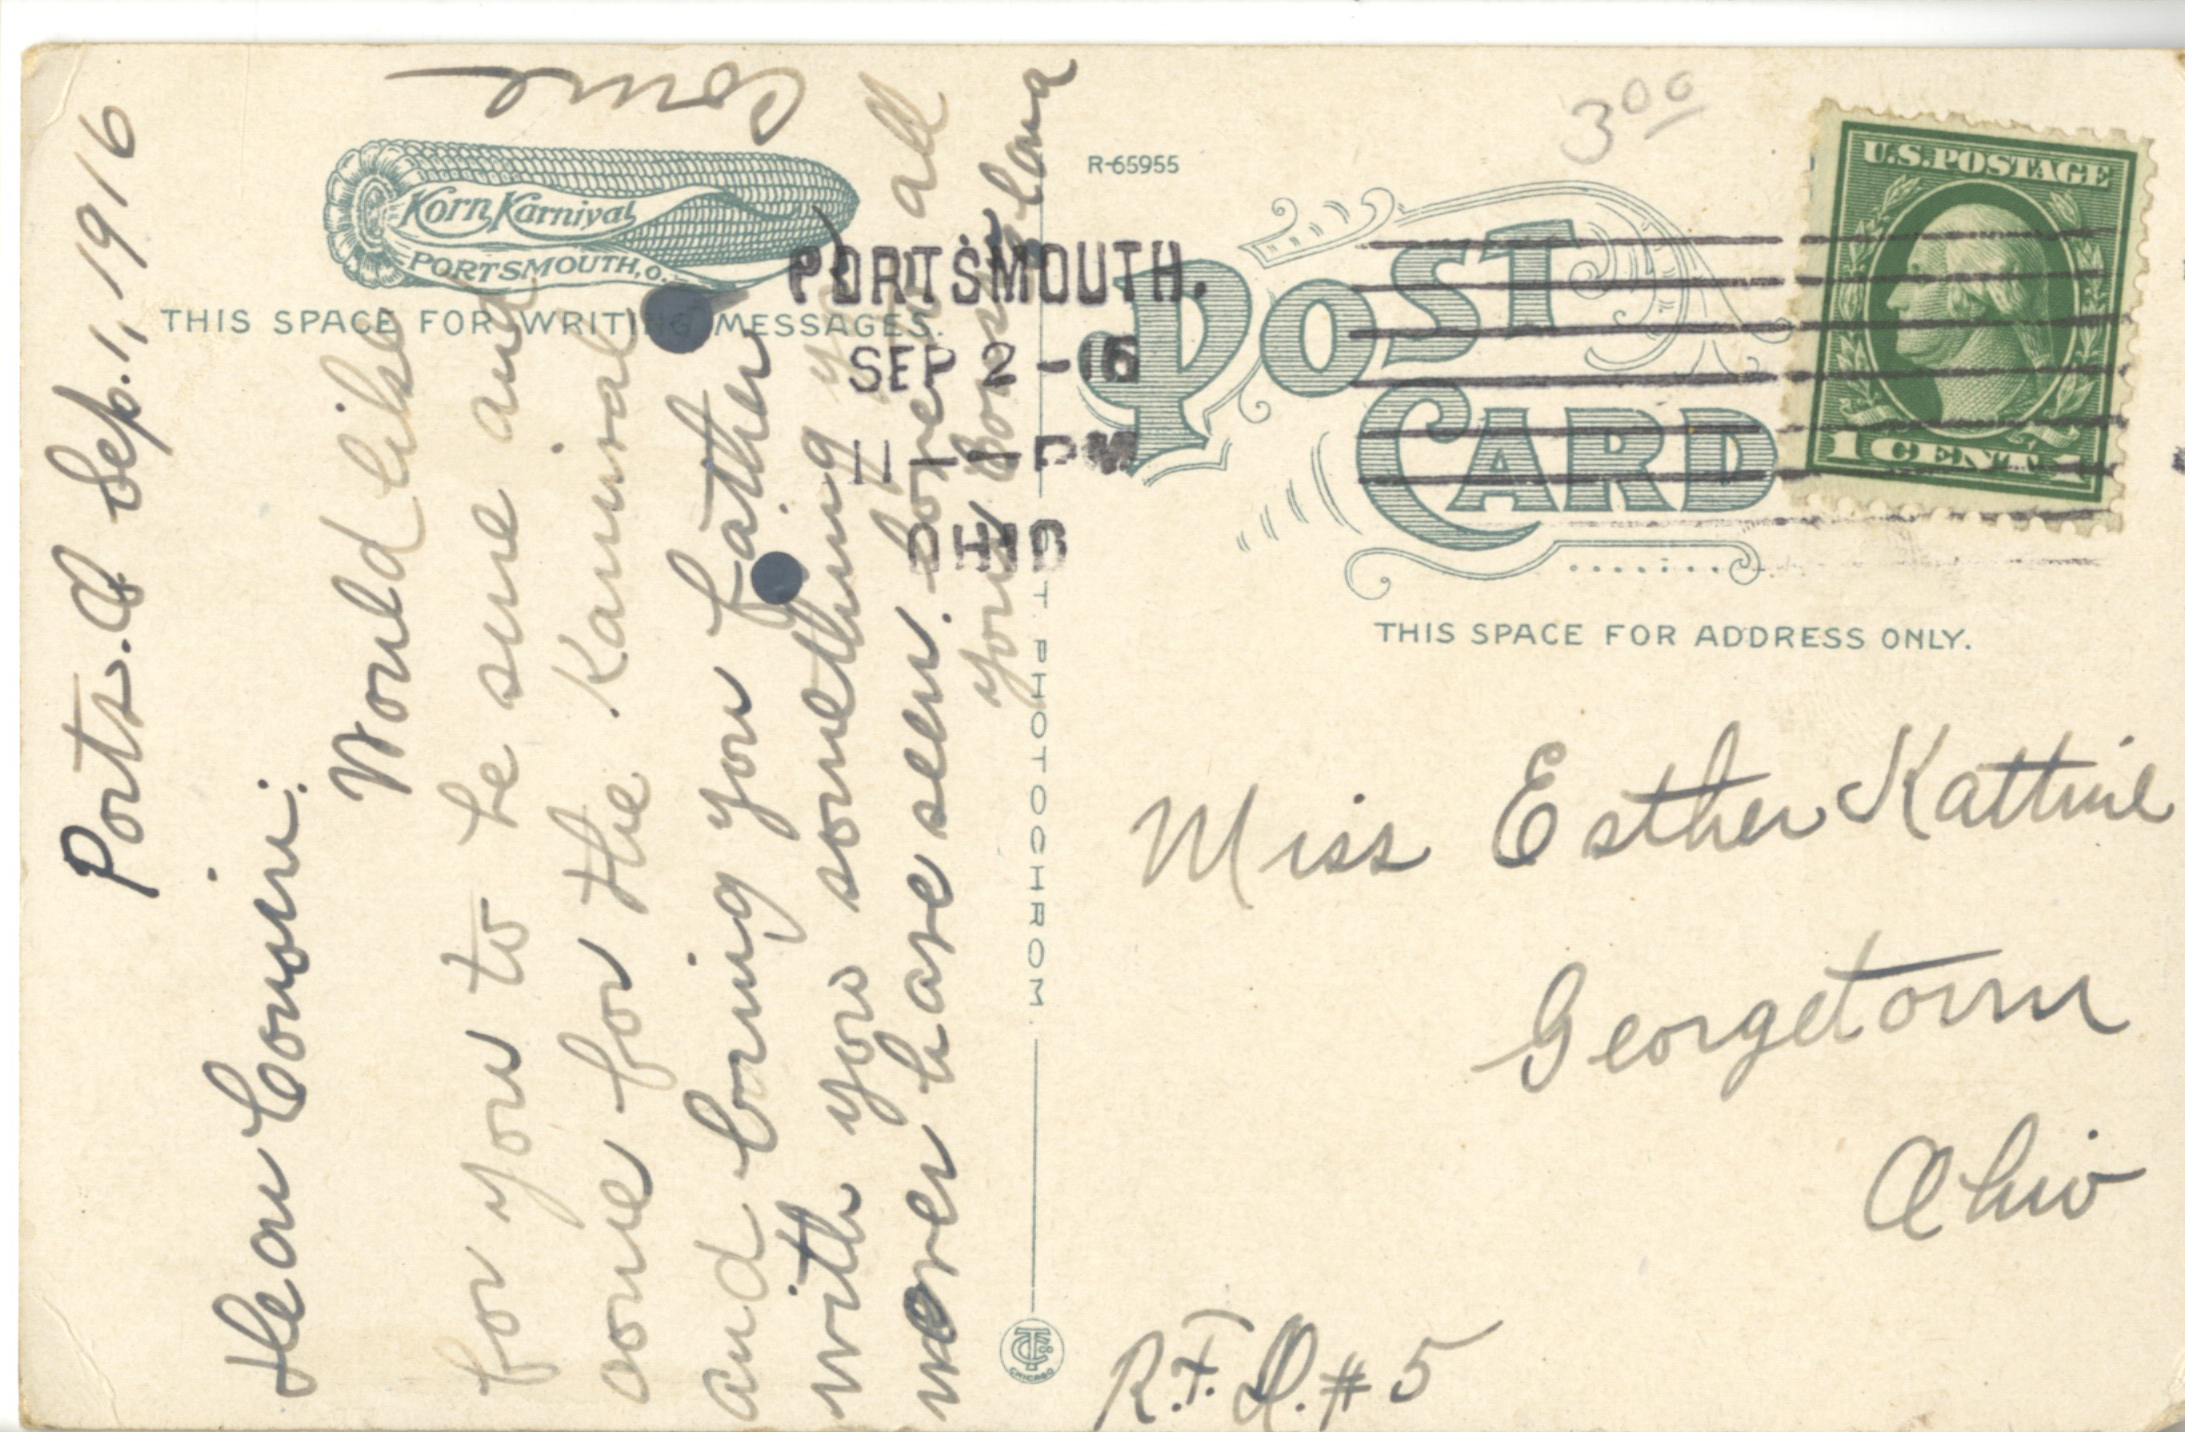 Ports. O. Sep. 1, 1916
Dear Cousin:
Would like
for you to be sure and
come for the Karnival
and bring you father
with you something
never have seen. all
your Cousin
come
Korn Karnival
PORTSMOUTH, O.
THIS SPACE FOR WRITING MESSAGES.
R-65955
POST
CARD
THIS SPACE FOR ADDRESS ONLY.
PORTSMOUTH.
SEP 2 - 16
11 - PM
OHIO
U.S. POSTAGE
1 CENT 1
3 00
Miss Esther Kattine
Georgetown
Ohio
R.F.D. # 5
PHOTOCHROM.
CHICAGO